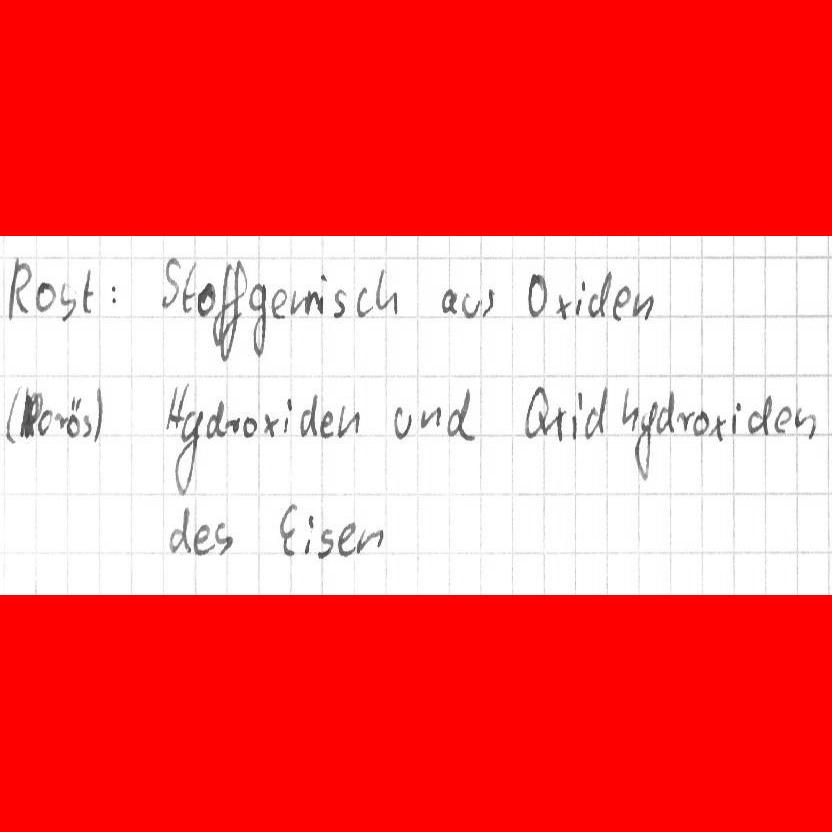 Rost: Stoffgemisch aus Oxiden
(Porös) Hydroxiden und Oxidhydroxiden
des Eisen